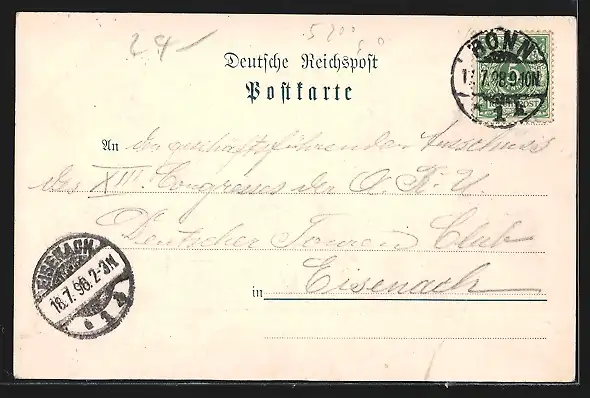 24
5200
Deutsche Reichspost
Postkarte
BONN
17.7.98.9-10N.
1
An den geschäftsführenden Ausschuss
des XIII. Congresses der O. R. U.
Deutscher Touren Club
in Eisenach
EISENACH
18.7.98.2-3N